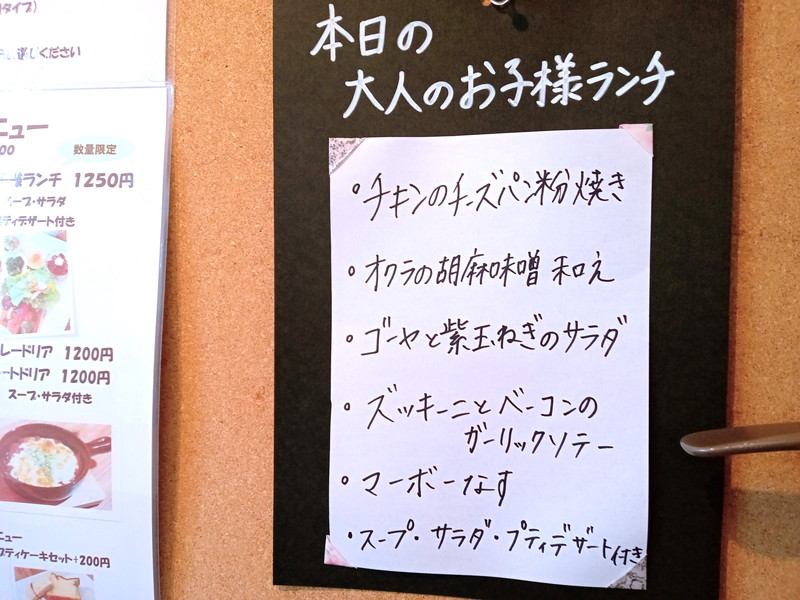 タイプ)
ください
ニュー
00
数量限定
ランチ 1250円
ープ・サラダ
ティデザート付き
レードリア 1200円
ートドリア 1200円
スープ・サラダ付き
ニュー
プティケーキセット+200円
本日の
大人のお子様ランチ
・チキンのチーズパン粉焼き
・オクラの胡麻味噌和え
・ゴーヤと紫玉ねぎのサラダ
・ズッキーニとベーコンの
ガーリックソテー
・マーボーなす
・スープ・サラダ・プティデザート付き